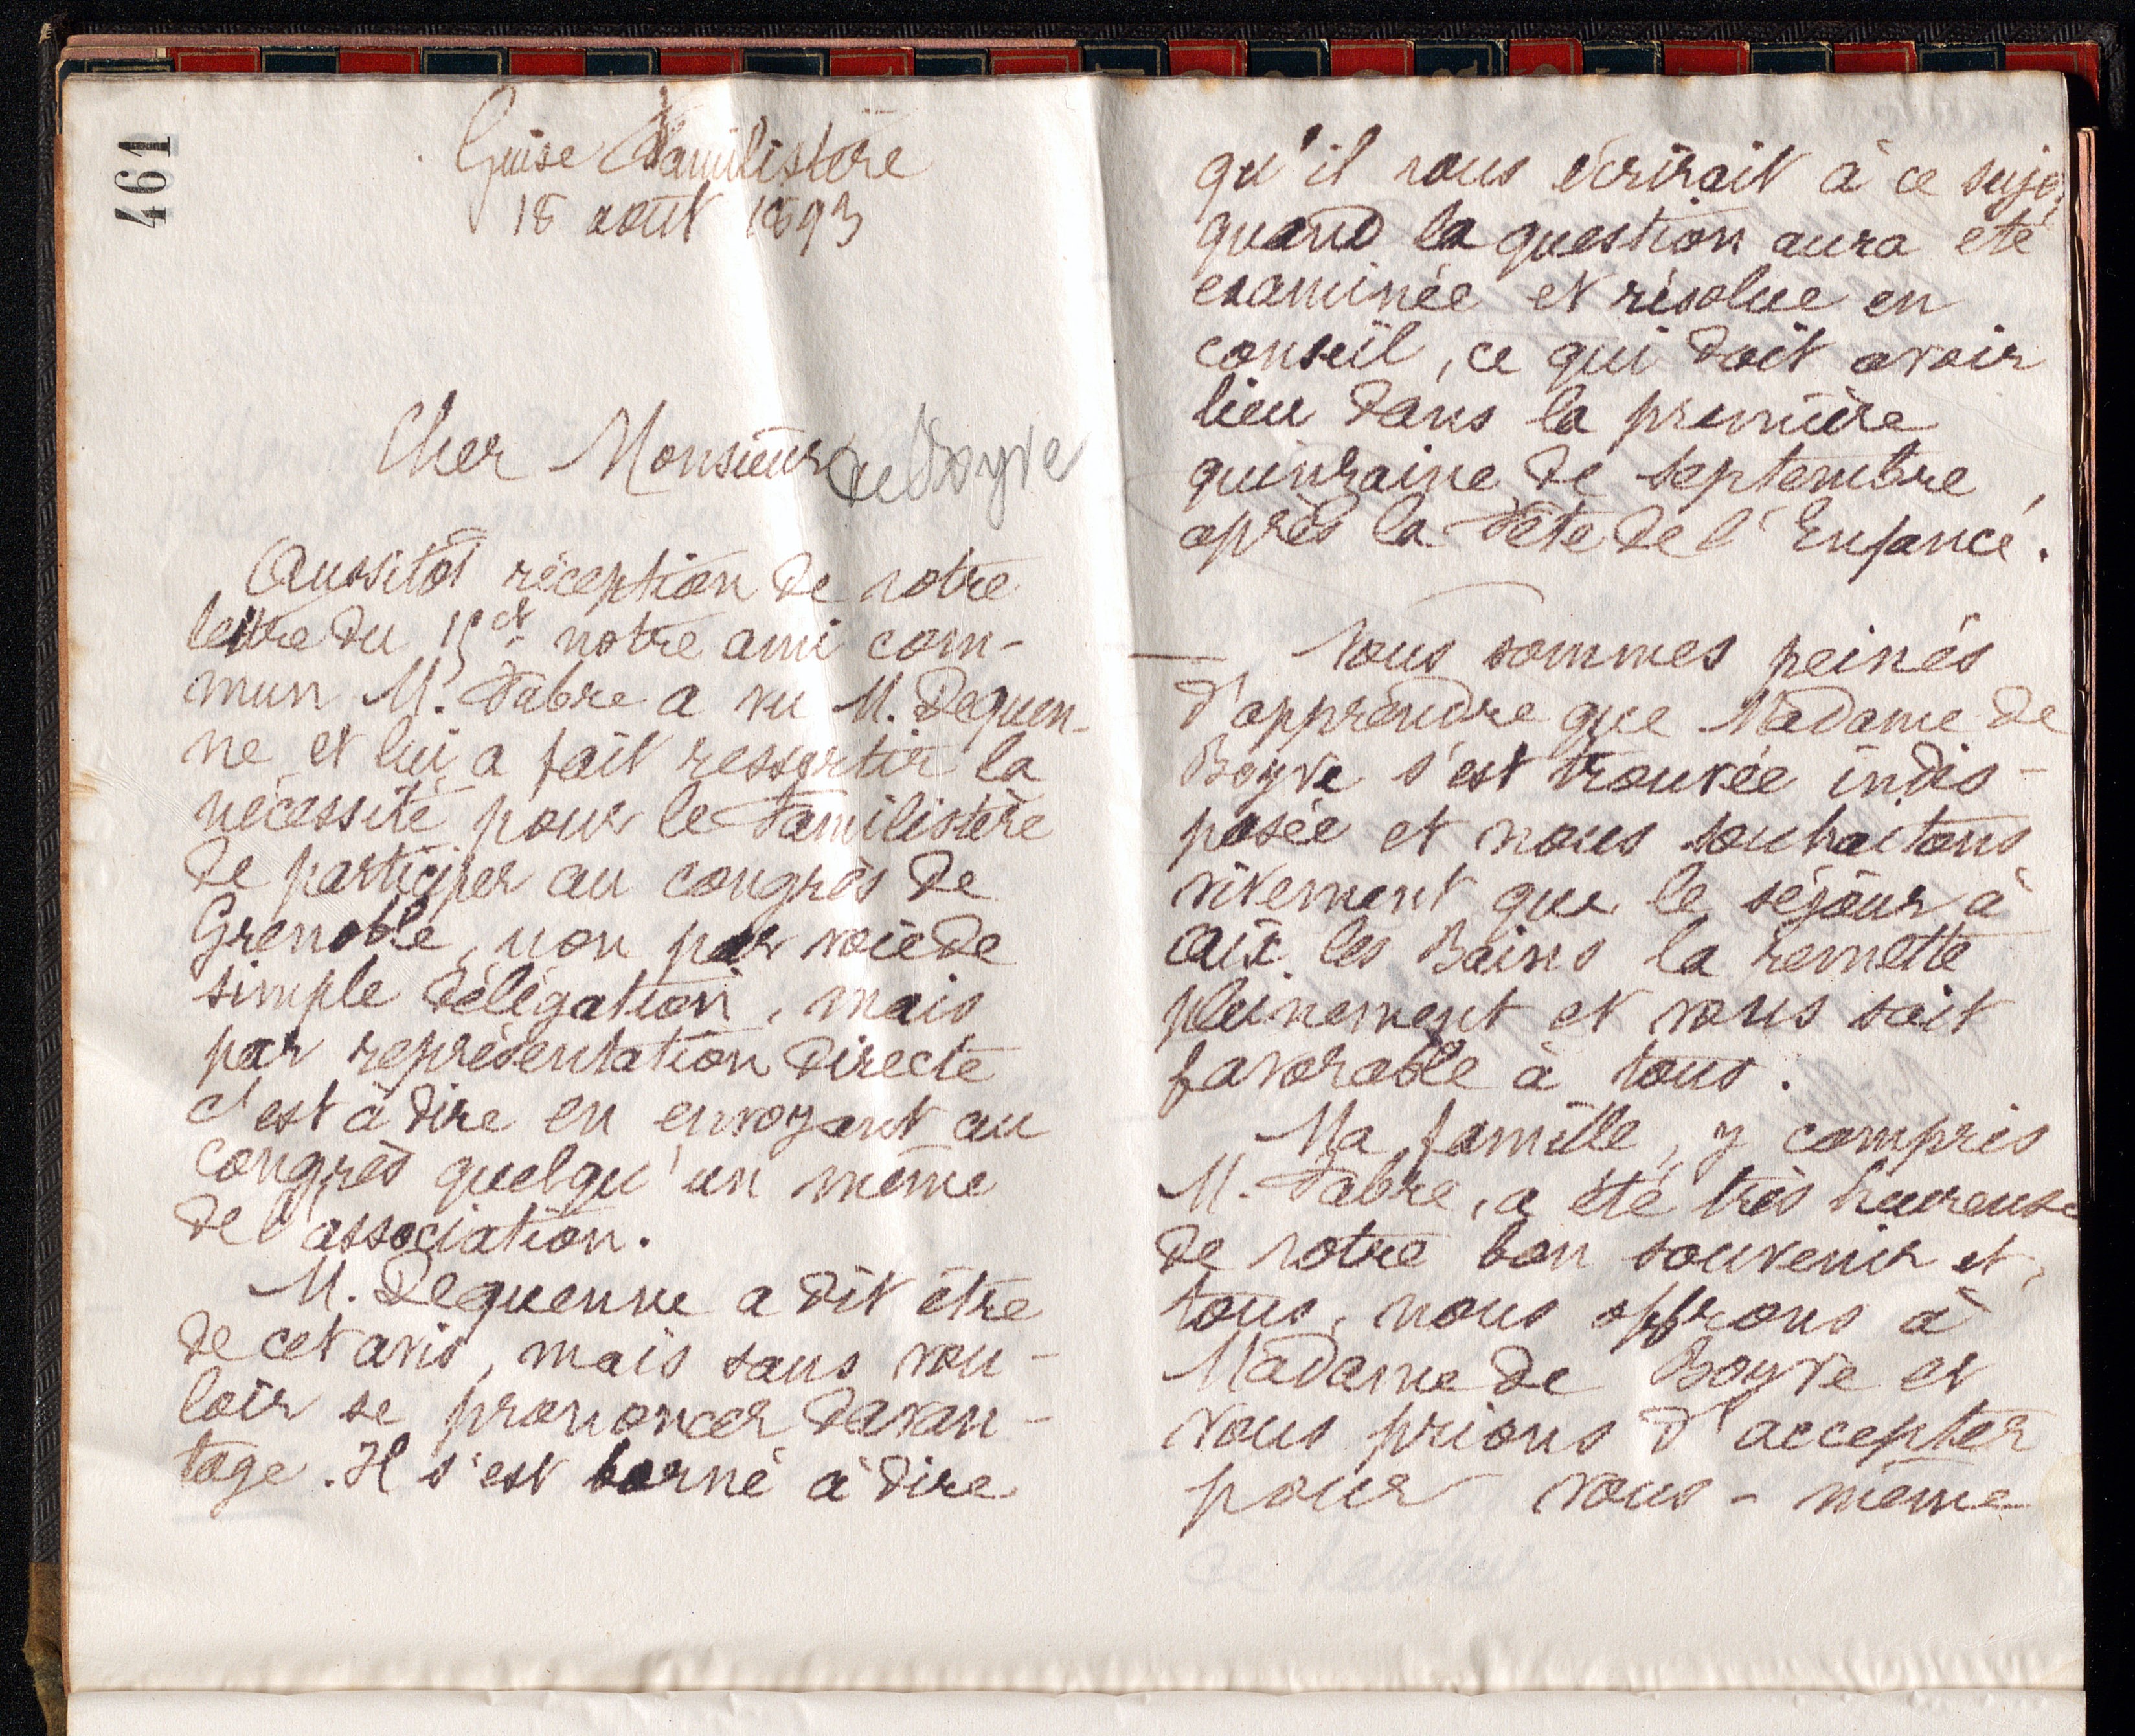 461
Guise Familistère
18 août 1893
Cher Monsieur de Boyve
Aussitôt réception de votre
lettre du 15 ct notre ami com-
mun M. Fabre a vu M. Dequen-
ne et lui a fait ressortir la
nécessité pour le Familistère
de participer au congrès de
Grenoble, non par voie de
simple délégation, mais
par représentation directe
c'est à dire en envoyant au
congrès quelqu'un même
de l'association.
M. Dequenne a dit être
de cet avis, mais sans vou-
loir se prononcer davan-
tage. Il s'est borné à dire
qu'il vous écrirait à ce sujet
quand la question aura été
examinée et résolue en
conseil, ce qui doit avoir
lieu dans la première
quinzaine de septembre,
après la Fête de l'Enfance.
Nous sommes peinés
d'apprendre que Madame de
Boyve s'est trouvée indis-
posée et nous souhaitons
vivement que le séjour à
Aix les Bains la remette
pleinement et vous soit
favorable à tous.
Ma famille, y compris
M. Fabre, a été très heureuse
de votre bon souvenir et,
tous, nous offrons à
Madame de Boyve et
vous prions d'accepter
pour vous-même